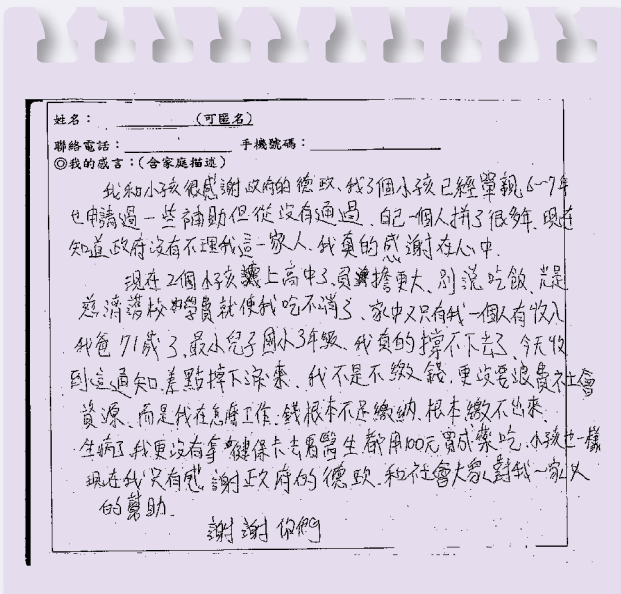 姓名：　　　(可匿名)
聯絡電話：　　　手機號碼：
◎我的感言：(含家庭描述)
我和小孩很感謝政府的德政、我3個小孩已經單親6～7年
也申請過一些補助但從沒有通過、自己一個人拼了很多年、現在
知道政府沒有不理我這一家人、我真的感謝在心中.
現在2個小孩讀上高中了、負擔更大、別說吃飯、光是
慈濟護校的學費就使我吃不消了、家中又只有我一個人有收入
我爸71歲了、最小兒子國小3年級、我真的撐不下去了、今天收
到這通知、差點掉下淚來、我不是不繳錢、更沒要浪費社會
資源、而是我在怎麼工作、錢根本不足繳納、根本繳不出來
生病了我更沒有拿健保卡去看醫生都用100元買成藥吃、小孩也一樣
現在我只有感謝政府的德政、和社會大眾對我一家人
的幫助.
謝謝你們